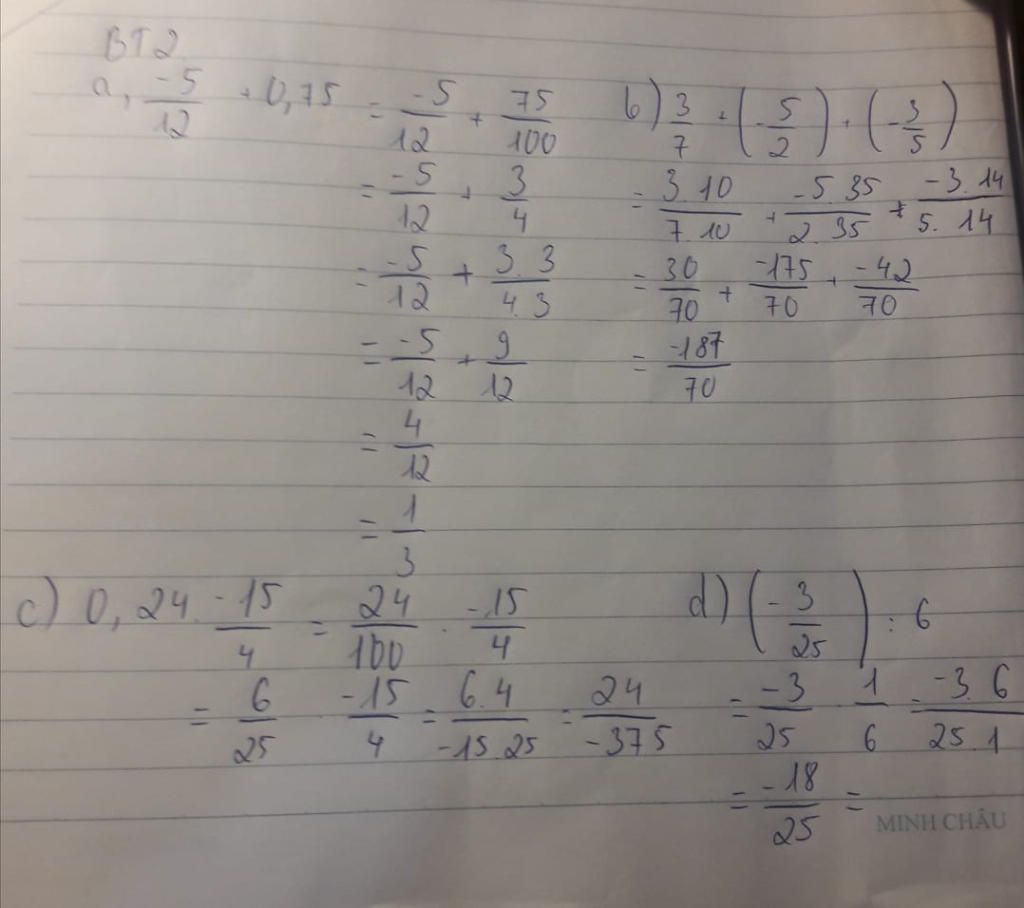 BT2
a, -5/12 + 0,75 = -5/12 + 75/100
= -5/12 + 3/4
= -5/12 + 3.3/4.3
= -5/12 + 9/12
= 4/12
= 1/3
b) 3/7 + (-5/2) + (-3/5)
= 3.10/7.10 + -5.35/2.35 + -3.14/5.14
= 30/70 + -175/70 + -42/70
= -187/70
c) 0,24 . -15/4 = 24/100 . -15/4
= 6/25 . -15/4 = 6.4/-15.25 = 24/-375
d) (-3/25) : 6
= -3/25 . 1/6 = -3.6/25.1
= -18/25 =
MINH CHÂU